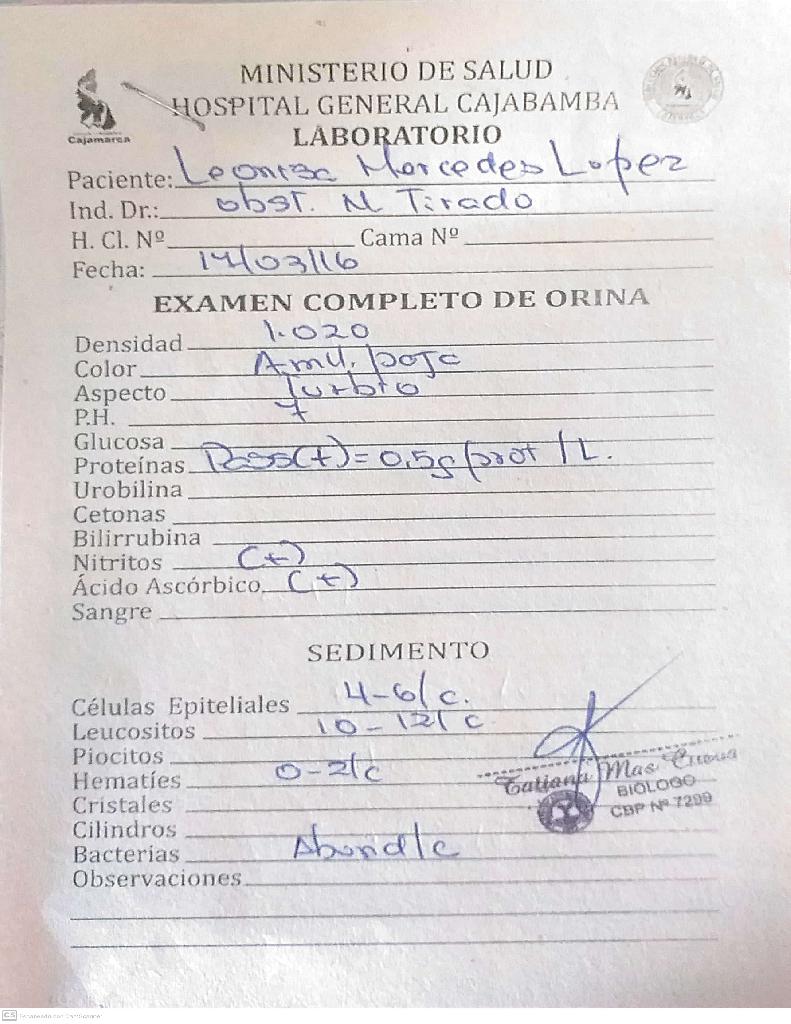 MINISTERIO DE SALUD
HOSPITAL GENERAL CAJABAMBA
LABORATORIO
Cajamarca
Paciente: Leoniza Mercedes Lopez
Ind. Dr.: obst. M Tirado
H. Cl. Nº Cama Nº
Fecha: 14/03/16
EXAMEN COMPLETO DE ORINA
Densidad 1.020
Color Amll. paja
Aspecto Turbio
P.H. 7
Glucosa
Proteínas (+) = 0,5g prot / L.
Urobilina
Cetonas
Bilirrubina
Nitritos (+)
Ácido Ascórbico (+)
Sangre
SEDIMENTO
Células Epiteliales 4-6/c.
Leucositos 10-12/c
Piocitos
Hematíes 0-2/c
Cristales
Cilindros
Bacterias Abund/c
Observaciones
Tatiana Mas
BIOLOGO
CBP Nº 7299
CS Escaneado con CamScanner